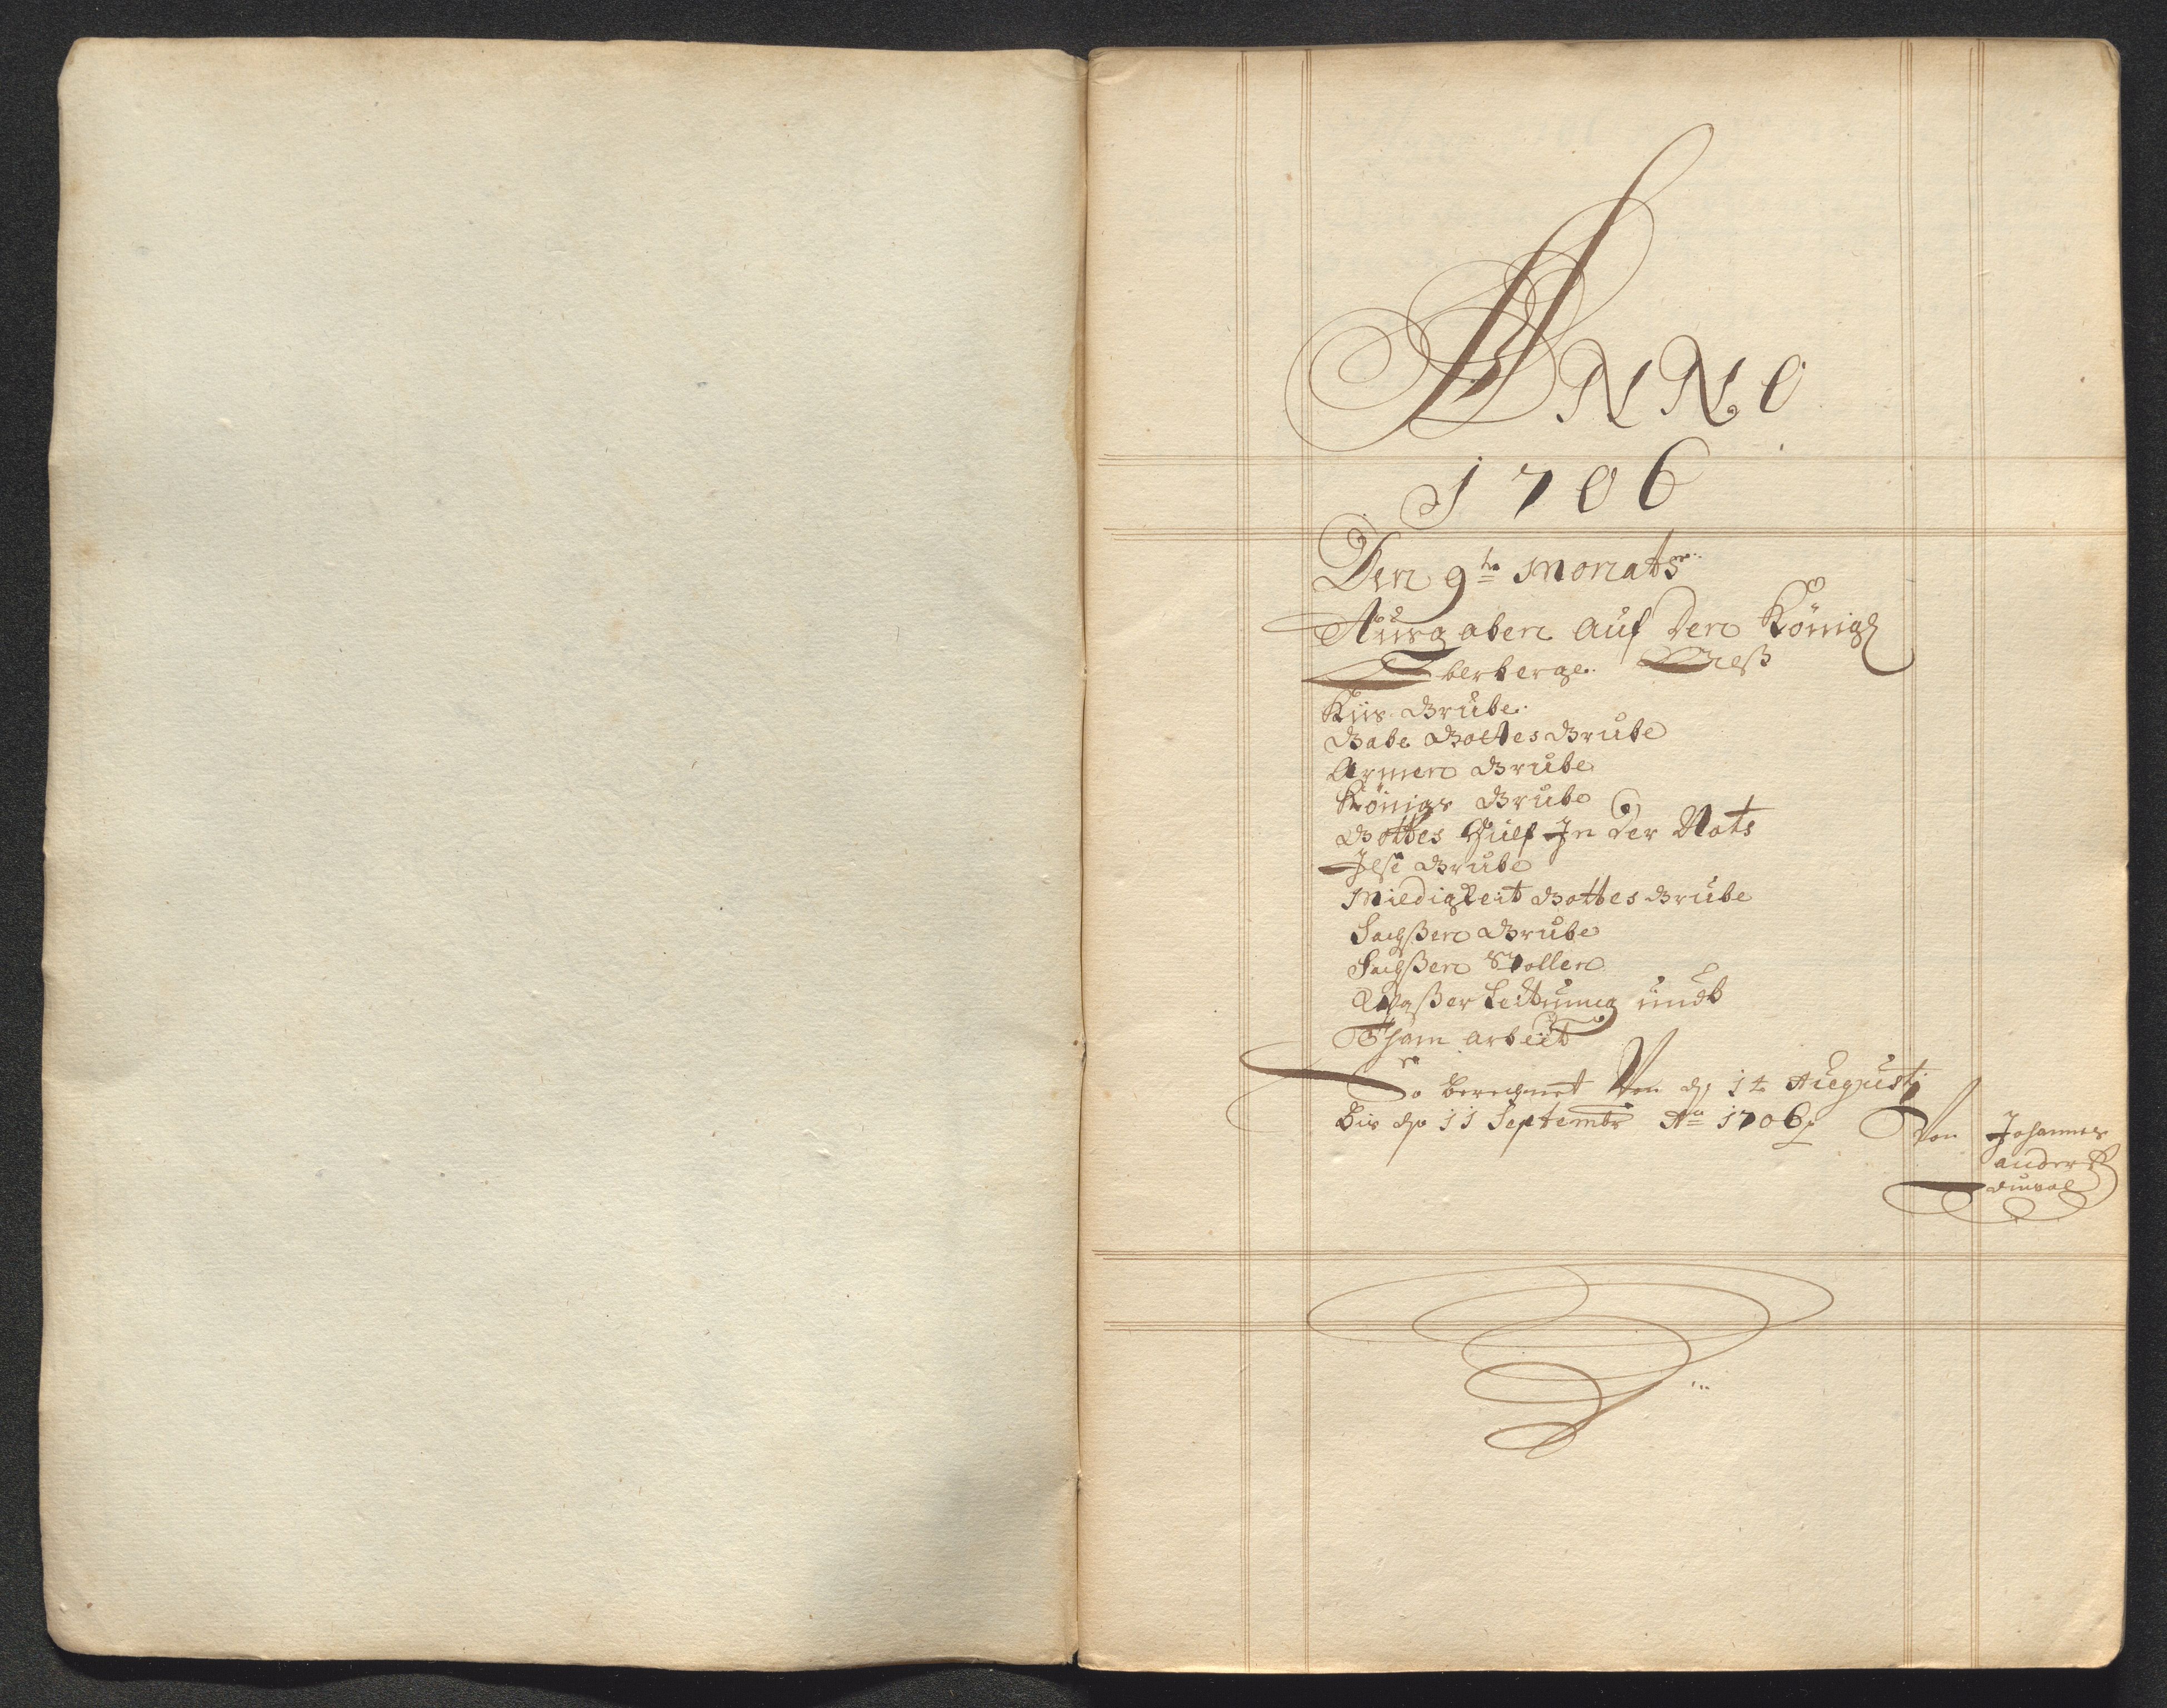 ANNO
1706
Den 9te Monats
Ausgaben auf den Königl
Überberge
Kiis Grube
Gabe Gottes Grube
Armen Grube
Königs Grube
Gottes Hülf In der Nots
Ilse Grube
Mildigkeit Gottes Grube
Sachßen Grube
Sachßen Stollen
Waßer Leitunng undt
Tham arbeit
So berechnet Von dn 14 Augusti
bis dn 11 Septembr Ao 1706
Von Johannes
anderß